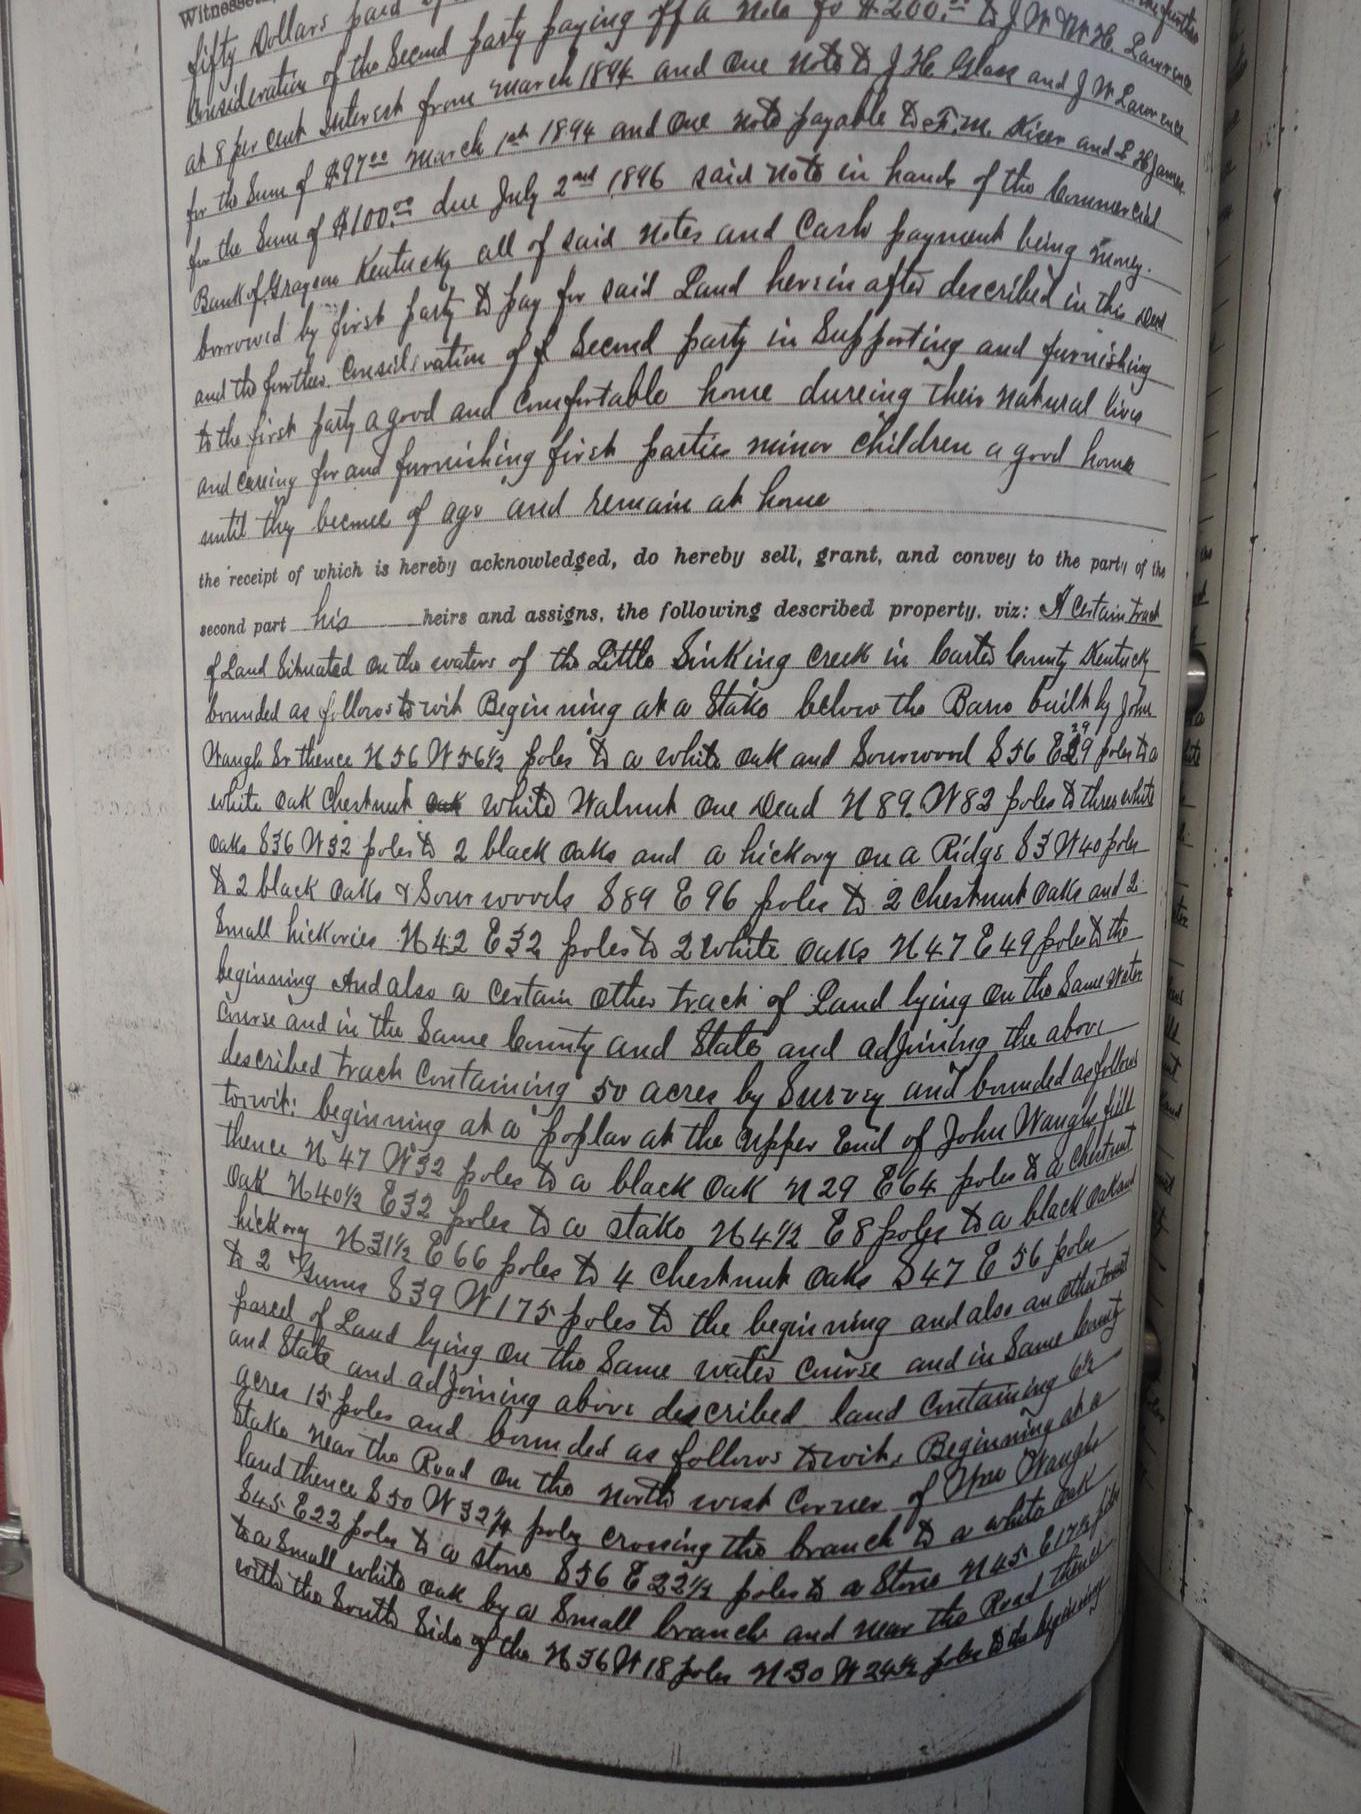 Witnesse
fifty Dollars paid
Consideration of the Second party paying off a note fo $200.00 to J W W H. Lawrence
at 8 per cent Interest from march 1894 and One note to J H Glass and J W Lawrence
for the Sum of $97.00 March 1st 1894 and One note payable to F. M. Kiser and L H James
for the Sum of $100.00 due July 2nd 1896 said note in hands of the Commercial
Bank of Grayson Kentucky all of said notes and Cash payment being money.
borrowed by first party to pay for said Land herein after described in this Deed
and the further Consideration of Second party in Supporting and furnishing
to the first party a good and Comfortable home dureing their natural lives
and careing for and furnishing first parties minor Children a good home
until thy become of age and remain at home
the receipt of which is hereby acknowledged, do hereby sell, grant, and convey to the party of the
second part his heirs and assigns, the following described property, viz: A Certain track
of Land Situated on the waters of the Little Sinking Creek in Carter County Kentucky
bounded as follows to wit Beginning at a Stake below the Barn built by John
Waugh Sr thence N 56 W 56½ poles to a white oak and Sourwood S 56 E 29 29 poles to a
white oak Chestnut oak white Walnut one Dead N 89. W 82 poles to three white
oaks S 36 W 32 poles to 2 black oaks and a hickory on a Ridge S 3 W 40 poles
to 2 black oaks & Sour woods S 89 E 96 poles to 2 Chestnut Oaks and 2
Small hickories N 42 E 32 poles to 2 white oaks N 47 E 49 poles to the
beginning And also a Certain other track of Land lying on the Same water
Course and in the Same County and State and adjoining the above
described track Containing 50 acres by Survey and bounded as follows
to wit: beginning at a poplar at the Upper End of John Waughs fill
thence N 47 W 32 poles to a black Oak N 29 E 64 poles to a Chestnut
Oak N 40½ E 32 poles to a stake N 4½ E 8 poles to a black oak and
hickory N 31½ E 66 poles to 4 Chestnut Oaks S 47 E 56 poles
to 2 Gums S 39 W 175 poles to the beginning and also an other
parcel of Land lying on the Same water Course and in Same County
and State and adjoining above described land Containing 6½
acres 15 poles and bounded as follows to wit, Beginning at a
Stake near the Road on the north west Corner of Waughs
land thence S 50 W 32¼ poles crossing the branch to a white oak
S 45 E 22 poles to a stone S 56 E 22½ poles to a Stone N 45 E 17½ poles
to a Small white oak by a Small branch and near the Road thence
with the South Side of the N 56 W 18 poles N 30 W 24½ poles to the beginning